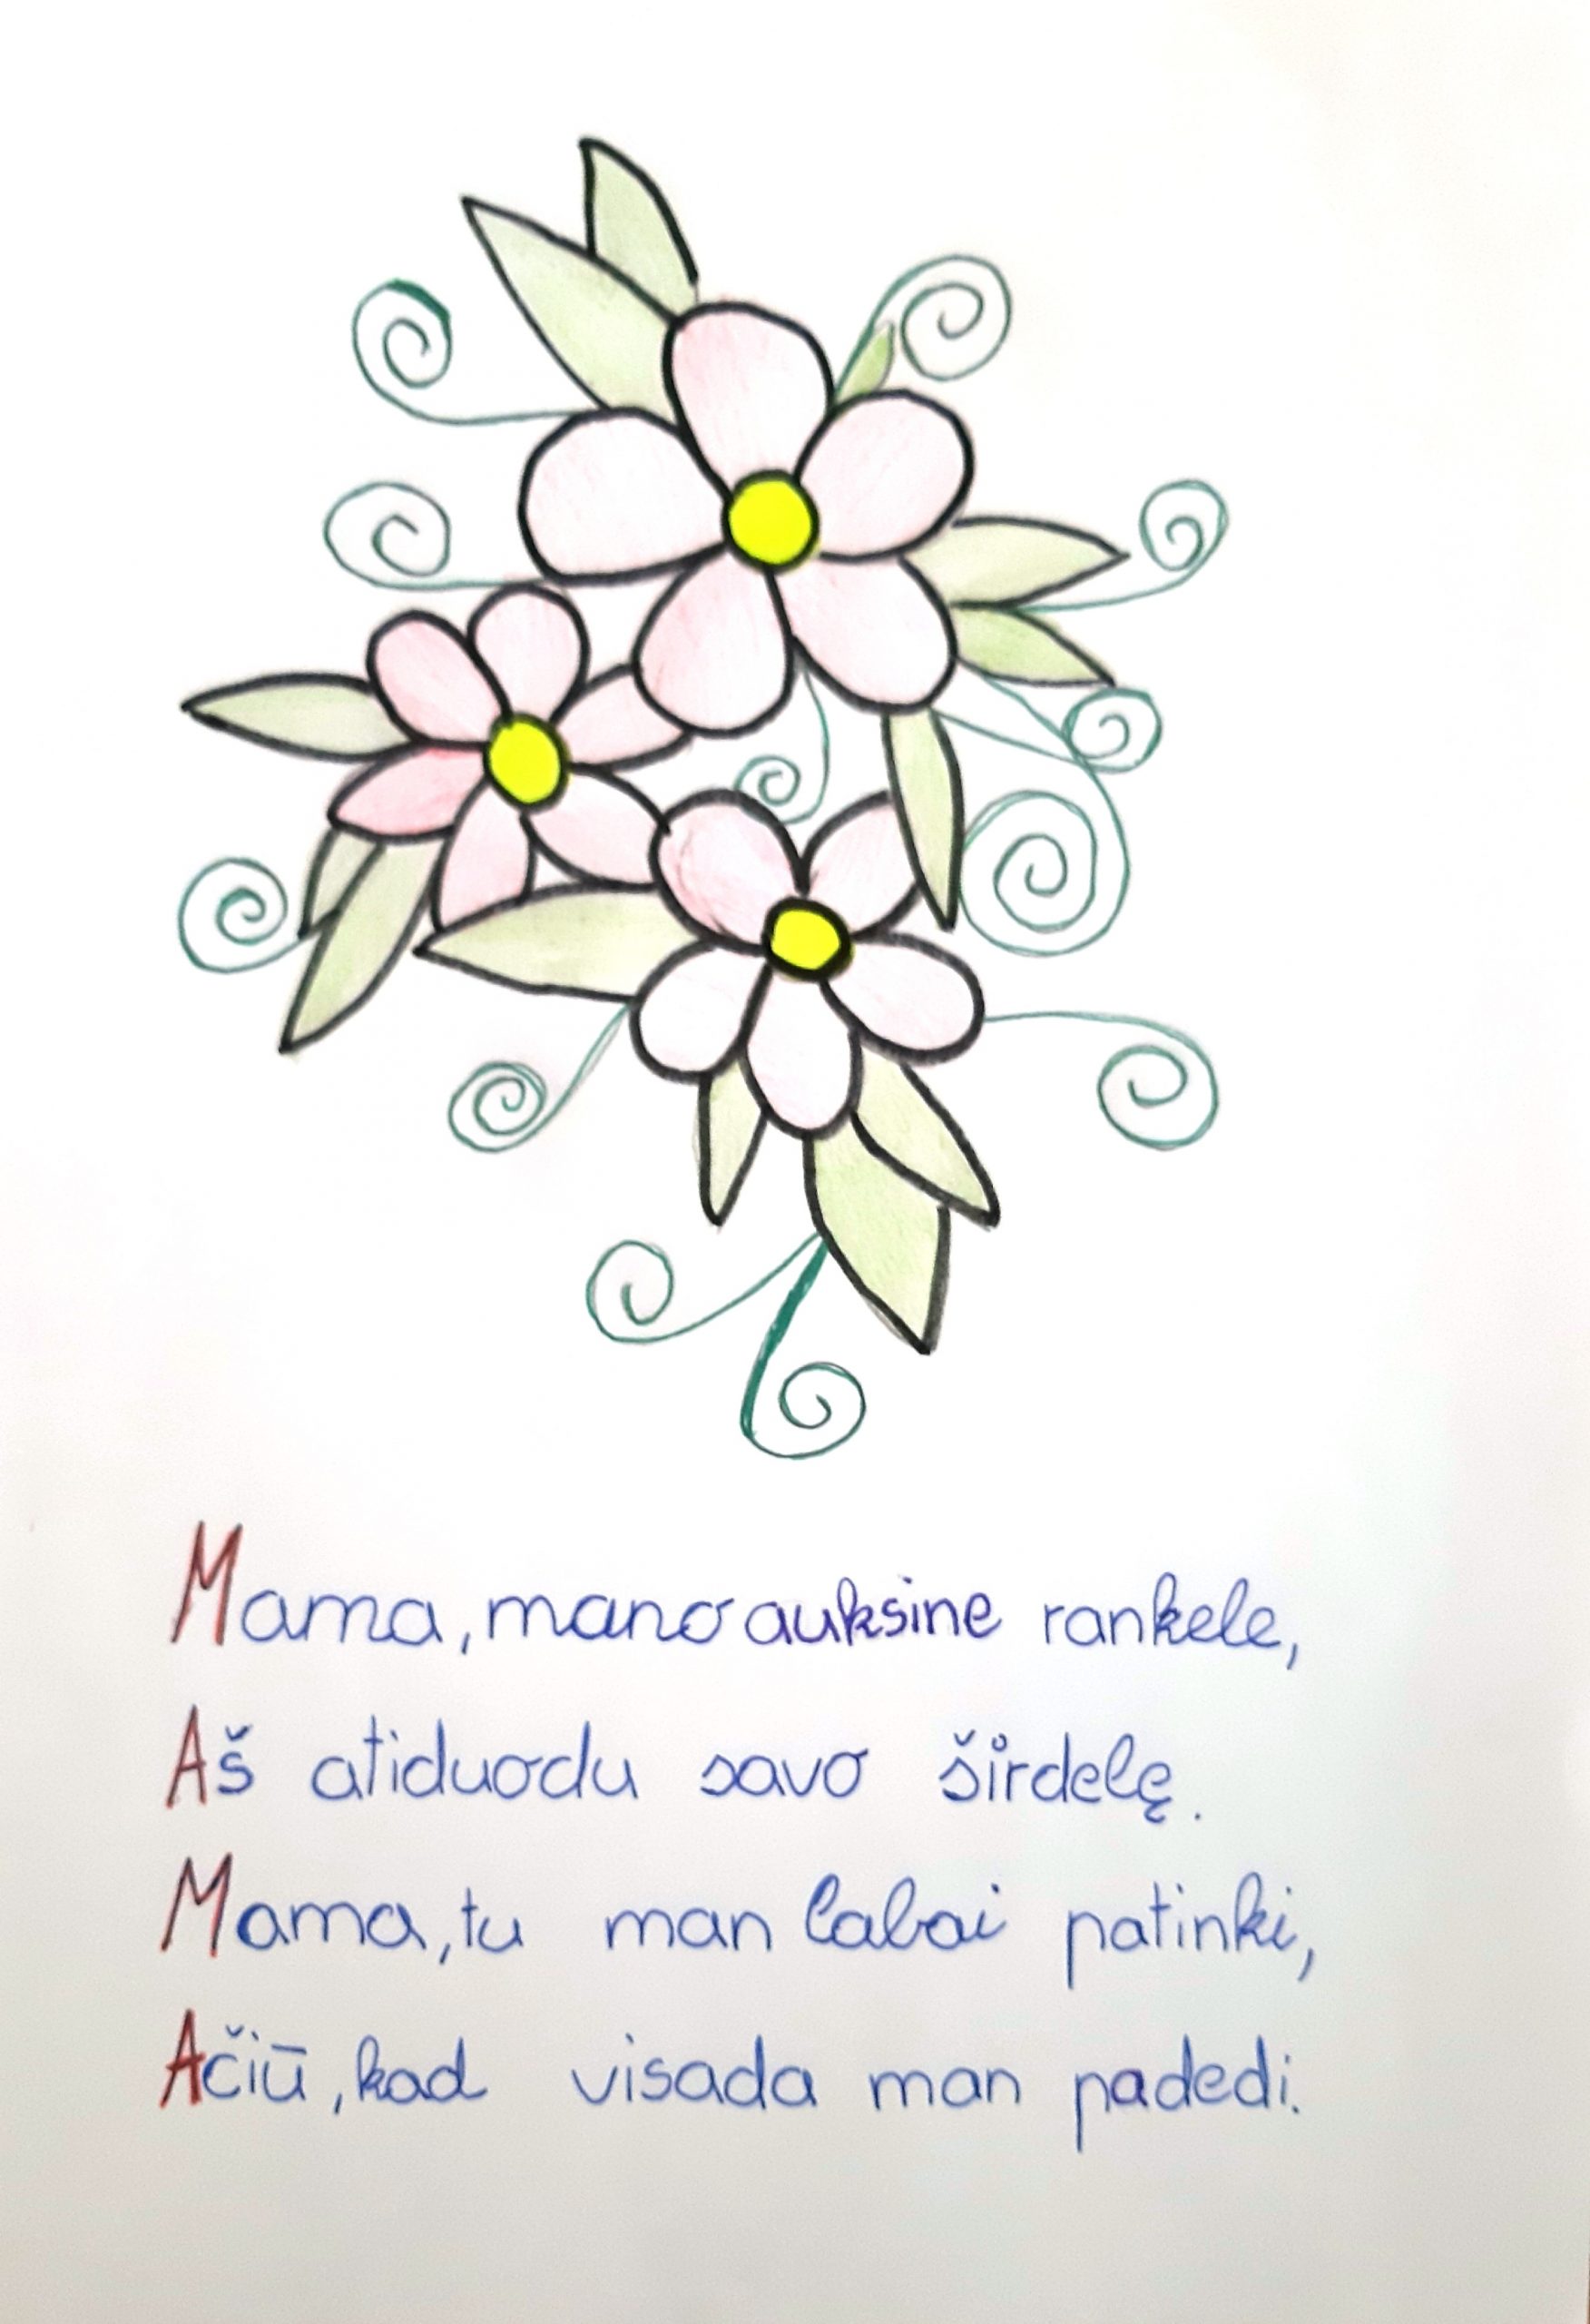 Mama, mano auksine rankele,
Aš atiduodu savo širdelę.
Mama, tu man labai patinki,
Ačiū, kad visada man padedi.